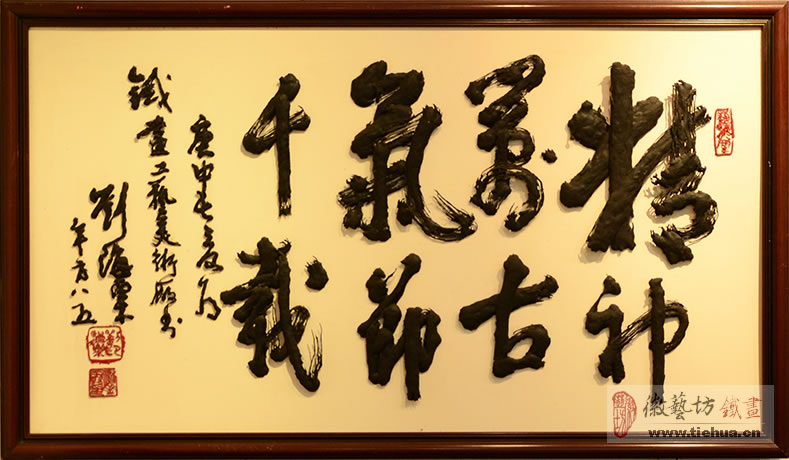 精神
萬古
氣節
千載
庚申
鐵畫工藝美術廠書
劉海粟
年方八五
徽藝坊 鐵畫
www.tiehua.cn